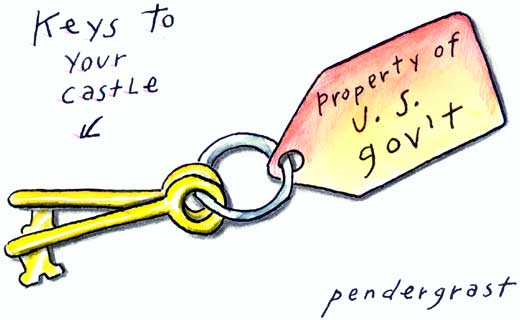 Keys to
your
castle
property of
U.S.
gov't
pendergrast